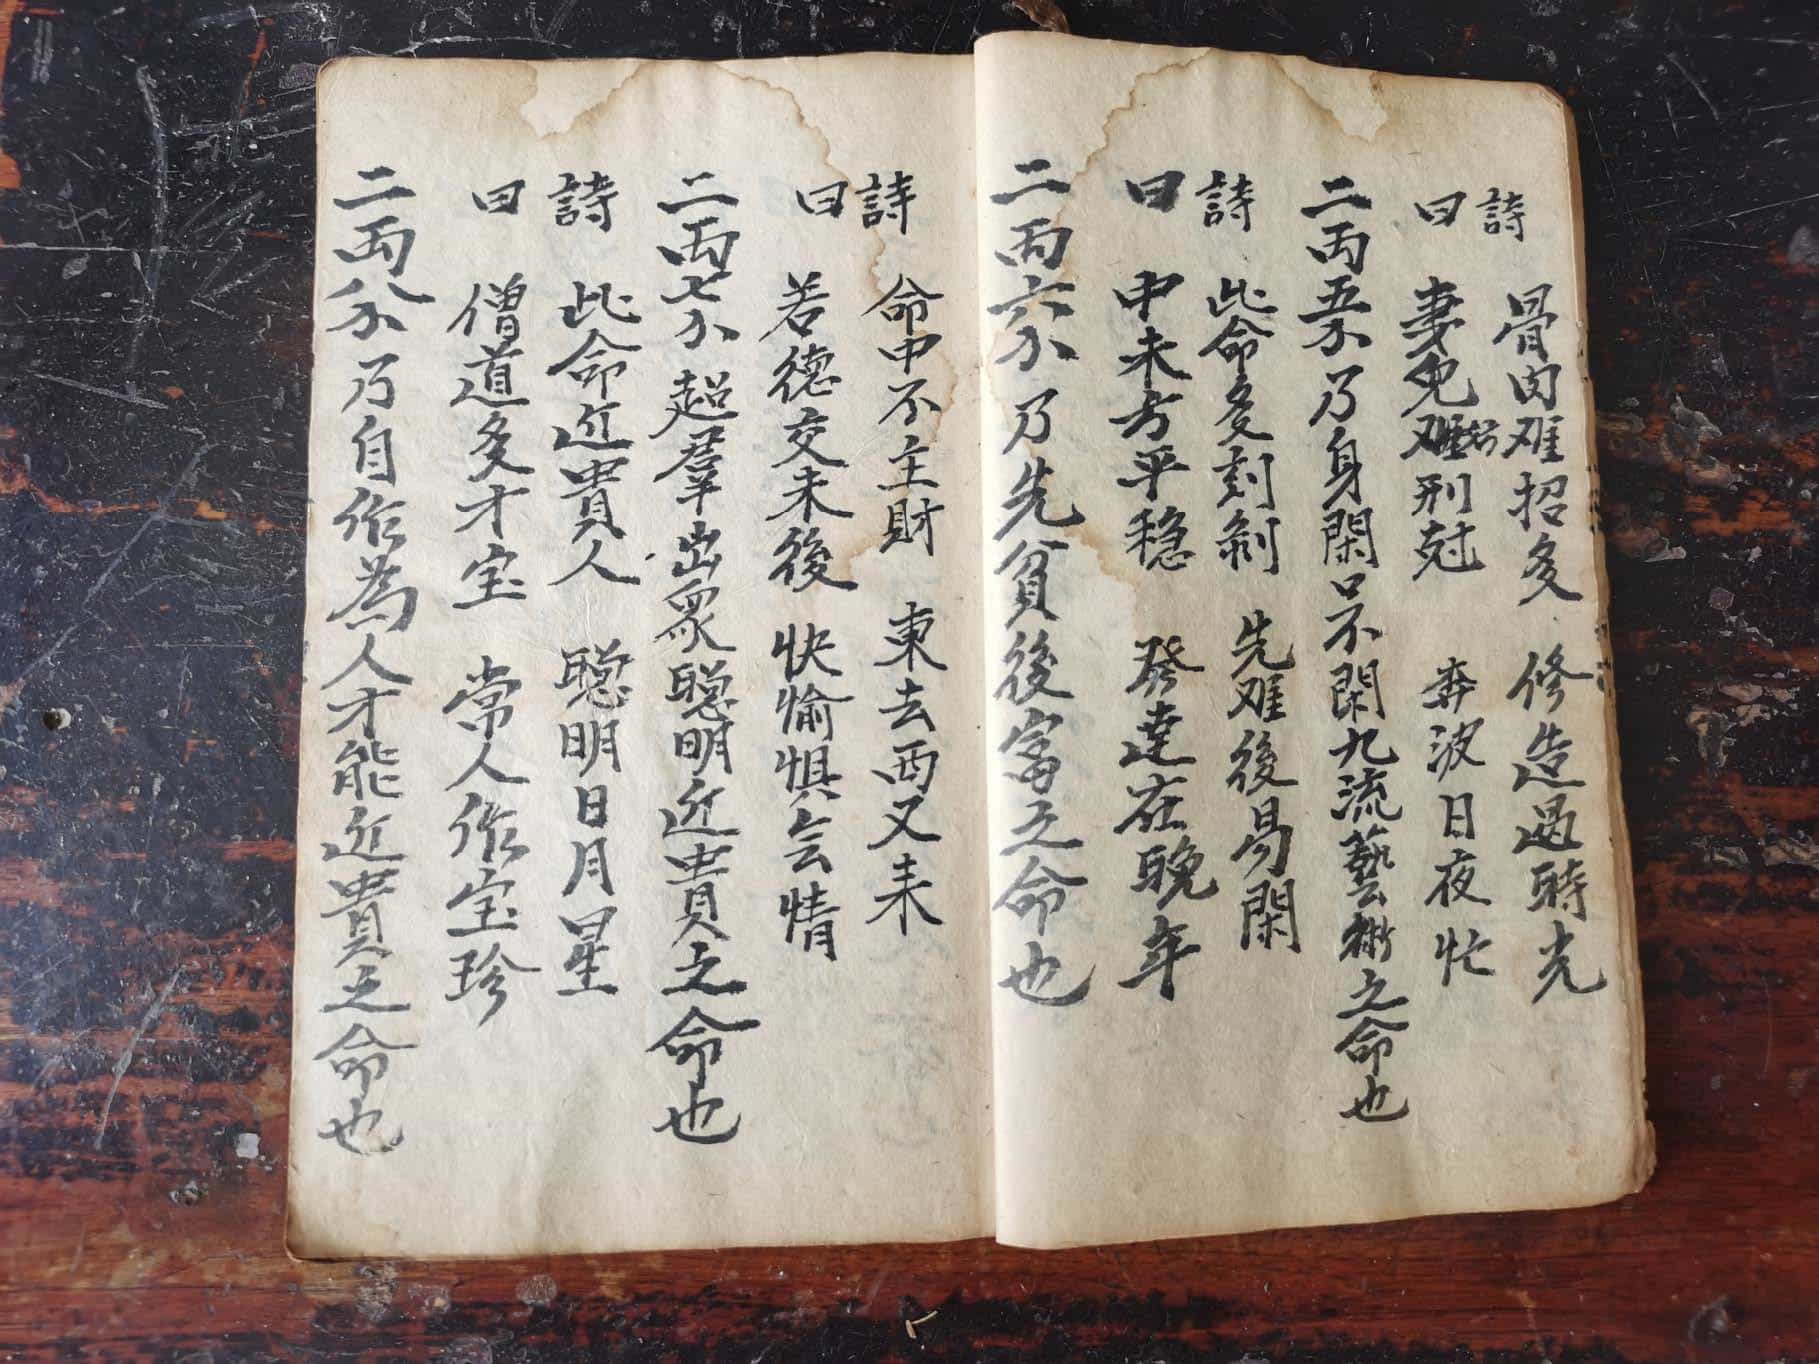 詩曰 骨肉难招多 修造過時光
妻兒难招刑尅 奔波日夜忙
二両五分乃身閑口不閑九流藝術之命也
詩曰 此命多刻剝 先难後易閑
中未方平穏 發達在晚年
二両六分乃先貧後富之命也
詩曰 命中不主財 東去西又来
若德交未後 快愉惧会情
二両七分超羣出眾聪明近貴之命也
詩曰 此命近貴人 聪明日月星
僧道多才宝 常人作宝珍
二両八分乃自作為人才能近貴之命也